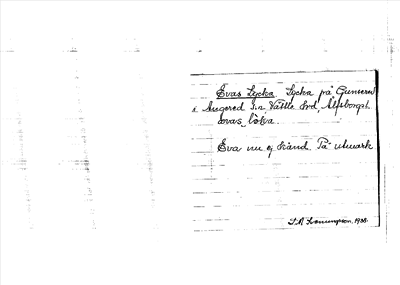 Evas Lycka. Lycka på Gunnered
i Angered sn Vättle hrd, Älfsborgs l.
evas lòka.
Eva nu ej känd. På utmark
1938.